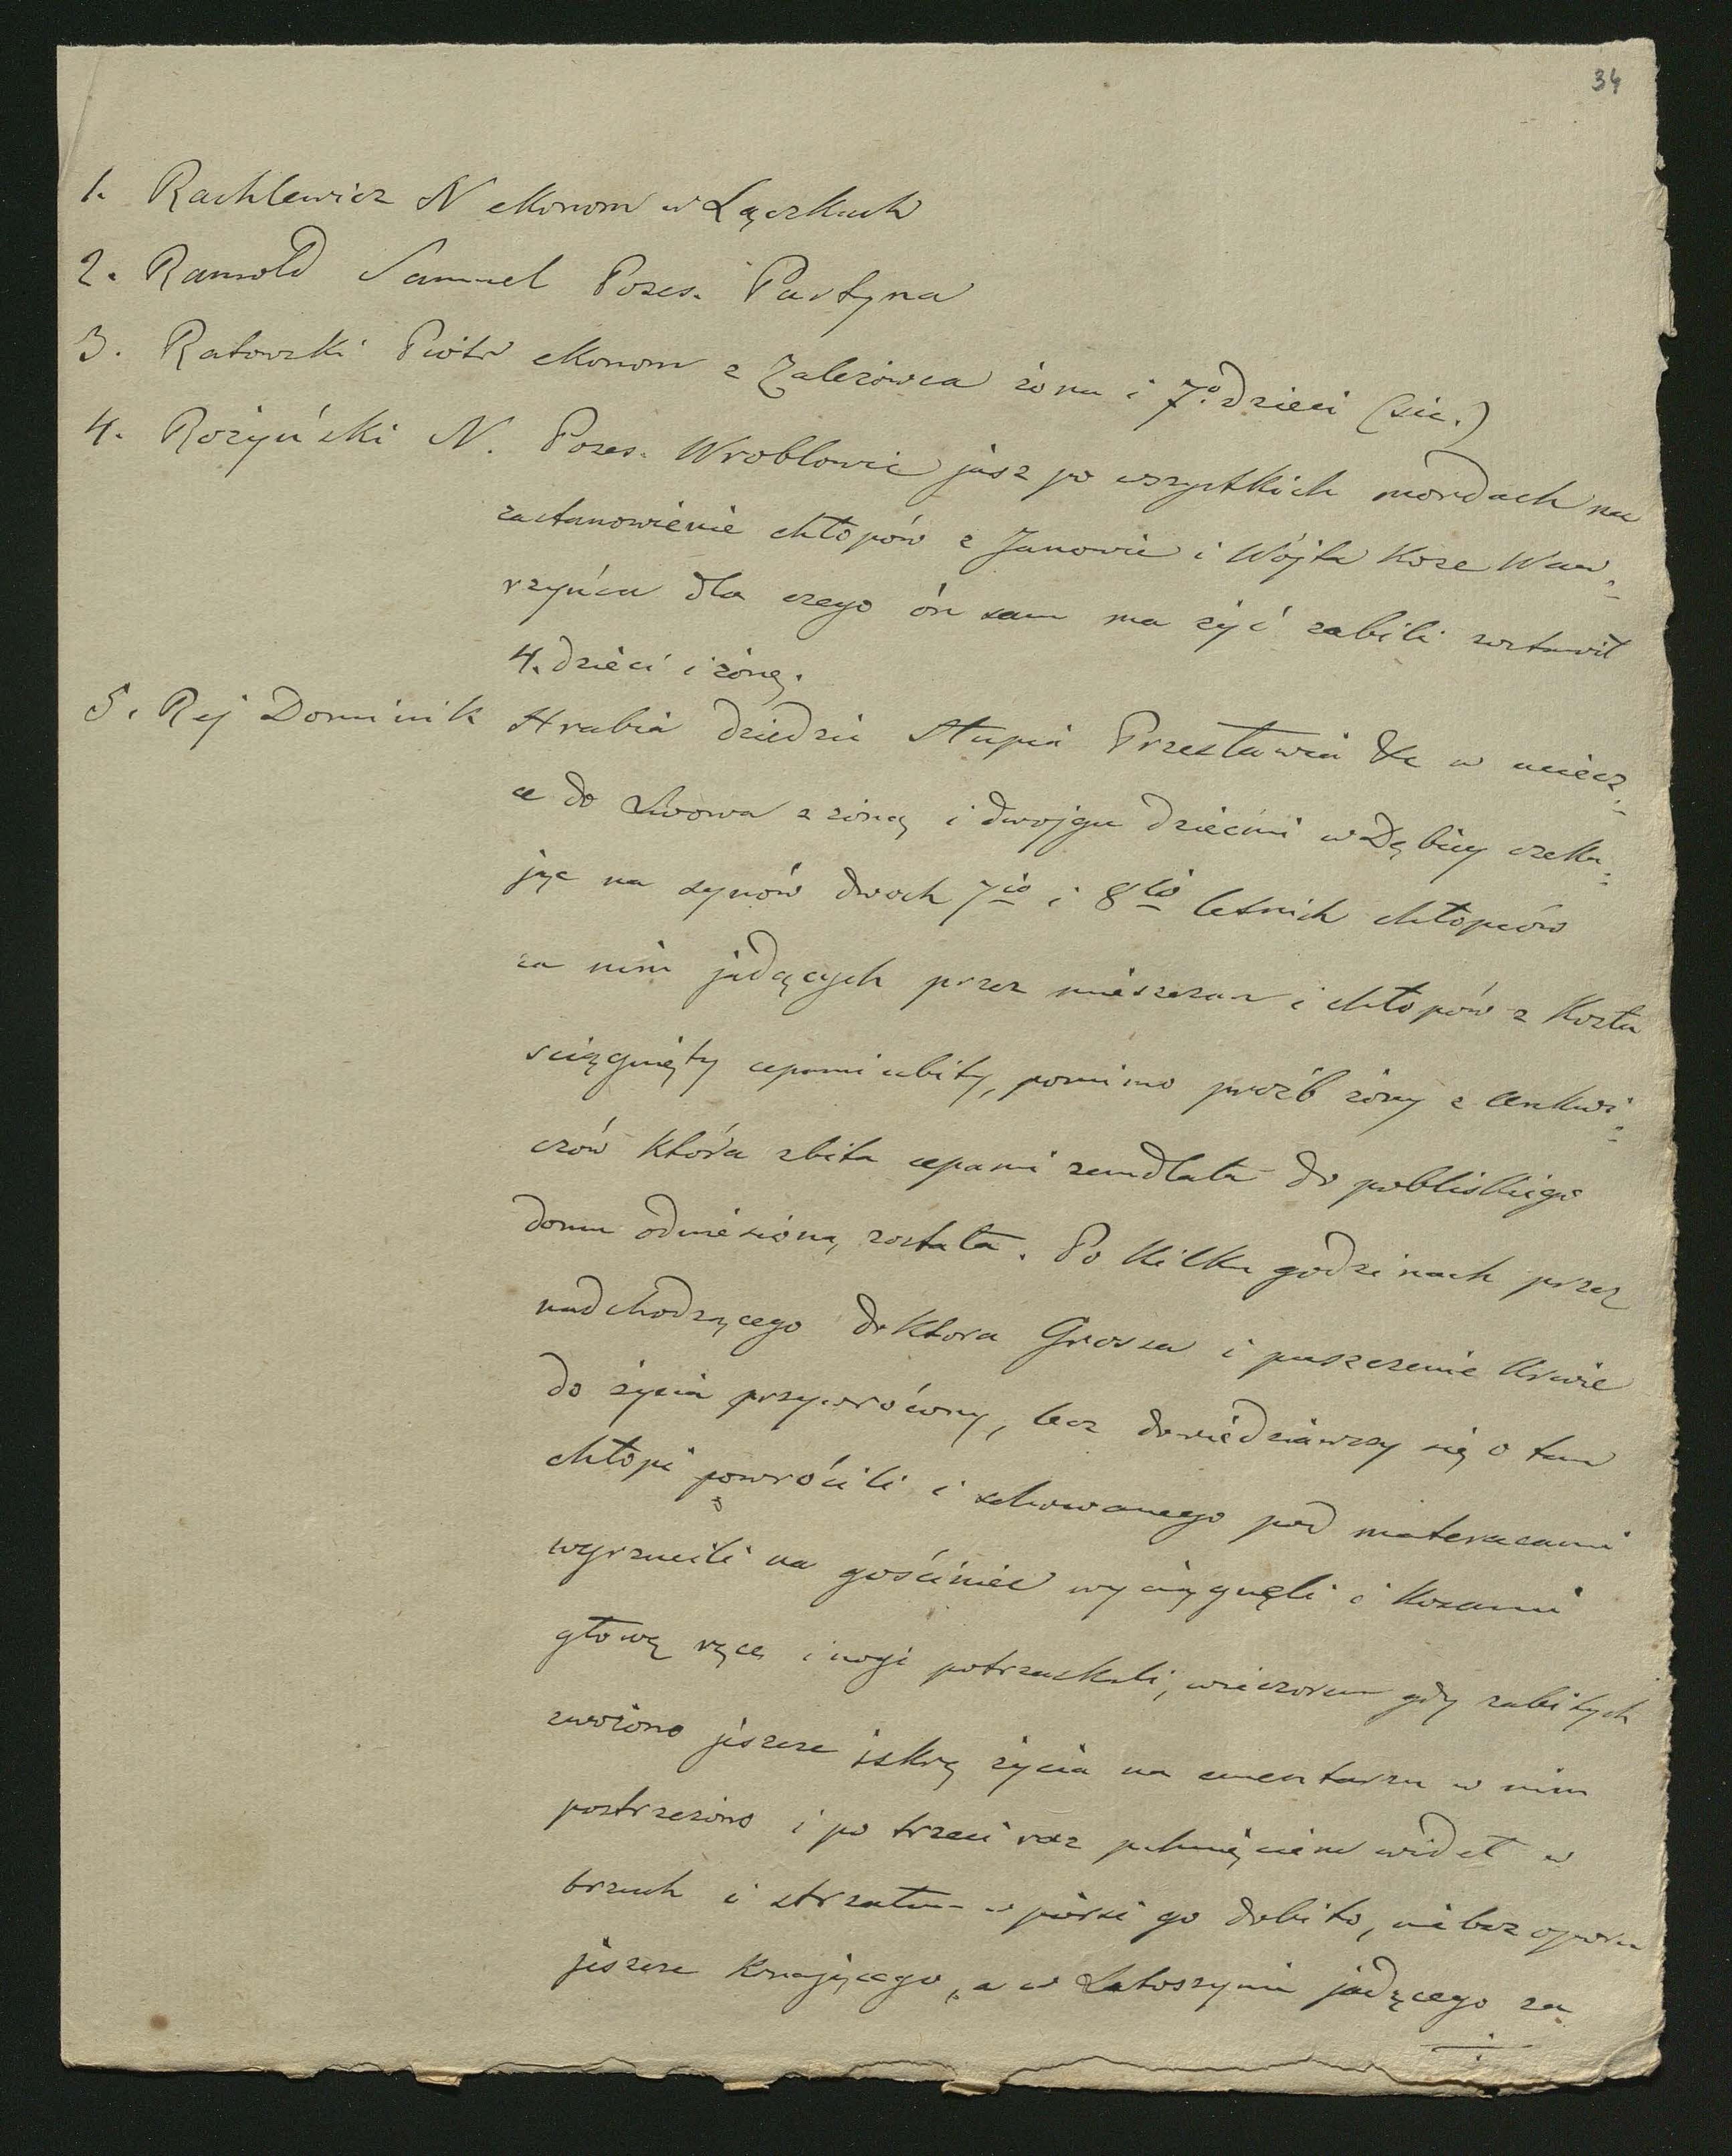 34
1. Rachlewicz N ekonom w Łączkach
2. Ramold Samuel Poses. Partyna
3. Ratowski Piotr ekonom z Zalezówca żona i 7o. dzieci (sic.)
4. Rożyński N. Poses. Wroblowic jusz po wszystkich mordach na
zastanowienie chłopów z Janowic i Wójta Koze Waw=
rzyńca dla czego ón sam ma żyć zabili zostawił
4. dzieci i żonę.
5. Rej Dominik Hrabia dziedzic Słupia Przecławia &c w uciecz=
ce do Lwowa z żoną i dwojgu dziećmi w Dębicy czeka=
jąc na synów dwoch 7io i 8io letnich chłopców
za nim jadących przez mieszczan i chłopów z Kozła
sciągnięty cepami ubity, pomimo proźb żony z
czów która zbita cepami zemdlała do pobliskiego
domu odniesioną została. Po kilku godzinach przez
nadchodzącego doktora Grossa i puszczenie krwie
do życia przywrócony, lecz dowiedziawszy się o tem
chłopi powrócili i schowanego pod materacami
wyrzucili na gościniec wyciągnęli i kosami
głowę ręce i nogi potrzaskali, wieczorem gdy zabitych
zwożono jeszcze iskrę życia na cmentarzu w nim
postrzeżono i po trzeci raz pchnięciem wideł w
brzuch i strzałem w piersi go dobito, nie bez oporu
jeszcze konającego, a w Latoszynie jadącego za